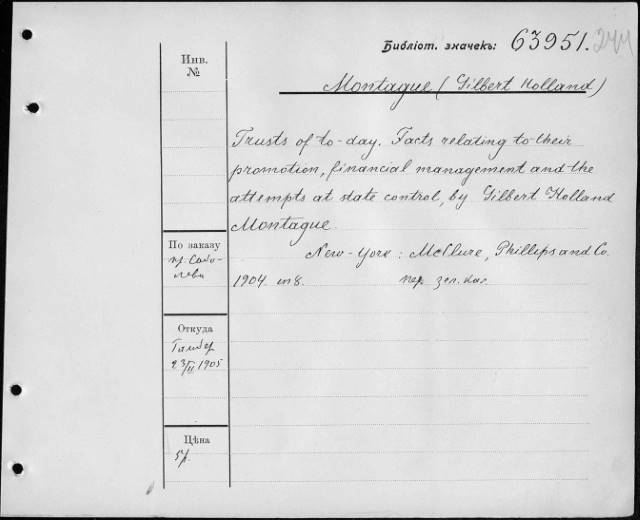 Библіот. значекъ: 63951. 244
Инв.
№
Montague (Gilbert Holland)
Trusts of to-day. Facts relating to their
promotion, financial management and the
attempts at state control, by Gilbert Holland
Montague.
New-York: McClure, Phillips and Co.
1904. in 8. пер. зел. кал.
По заказу
пр. Собо-
лева
Откуда
23/II 1905
Цѣна
5р.